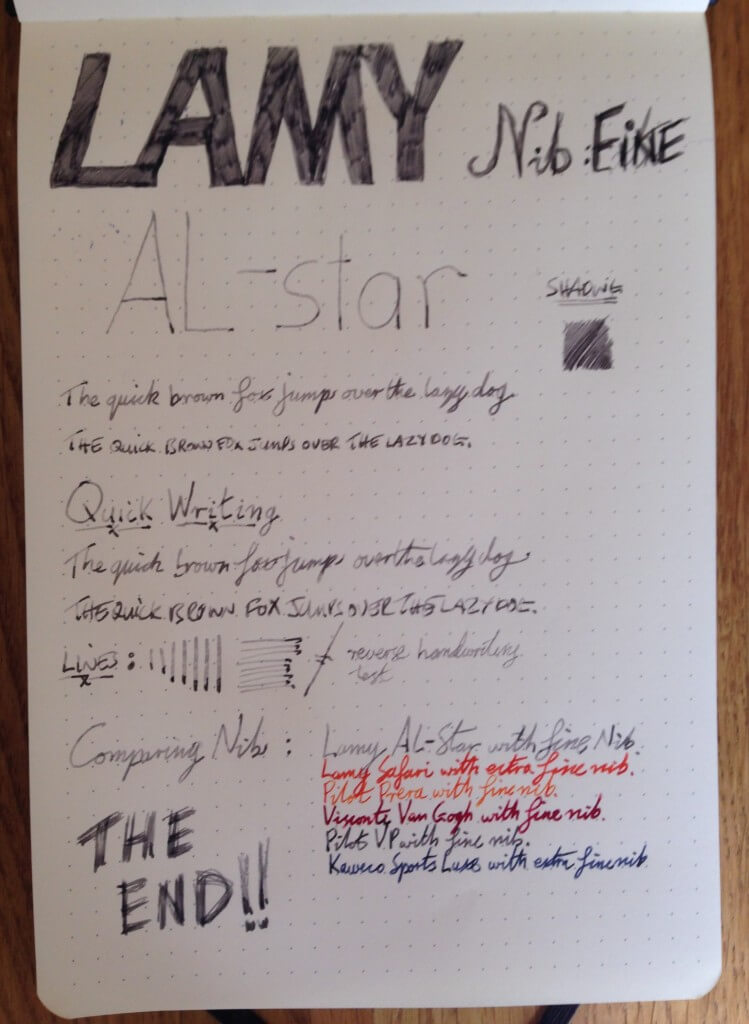 LAMY Nib: FINE
AL-star
SHADING
The quick brown fox jumps over the lazy dog
THE QUICK BROWN FOX JUMPS OVER THE LAZY DOG.
Quick Writing
The quick brown fox jumps over the lazy dog.
THE QUICK BROWN FOX JUMPS OVER THE LAZY DOE.
LINES: reverse handwriting
test
Comparing Nibs: Lamy AL-Star with fine Nib.
Lamy Safari with extra fine nib.
Pilot Prera with fine nib.
Visconti Van Gogh with fine nib.
Pilot VP with fine nib.
Kaweco Sports Luxe with extra fine nib
THE
END!!